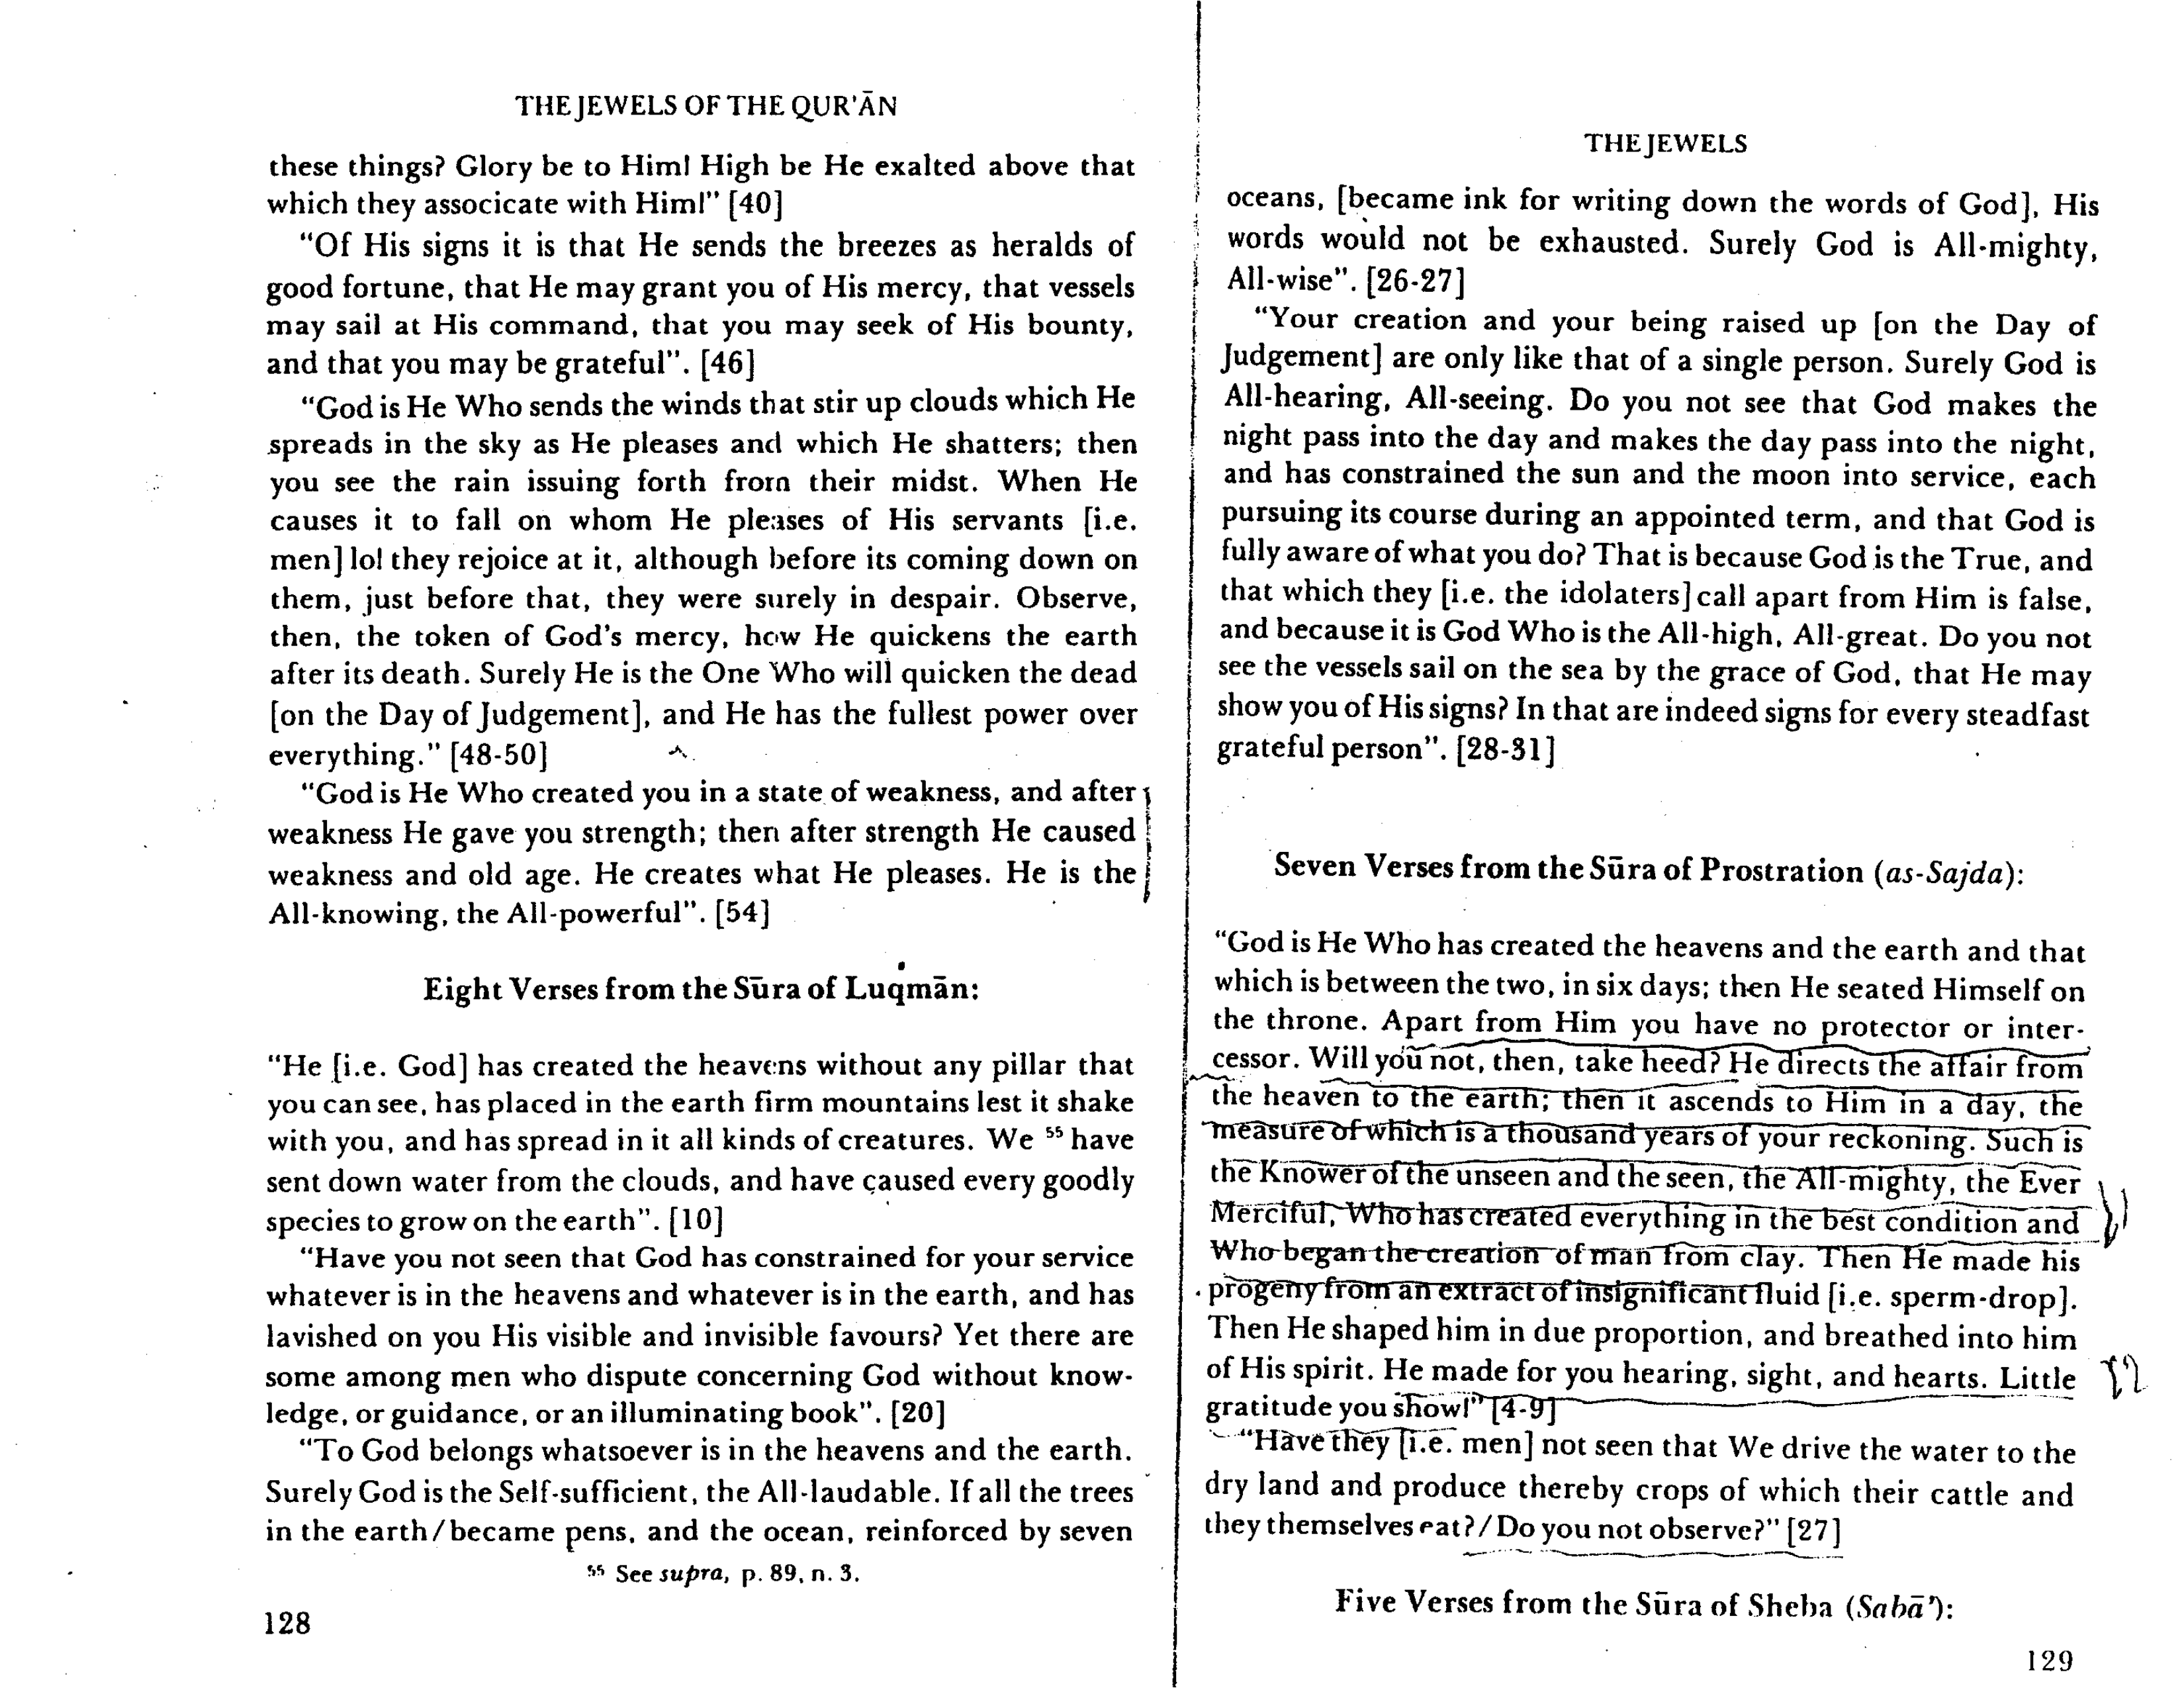 THE JEWELS OF THE QUR'ĀN
these things? Glory be to Him! High be He exalted above that
which they associcate with Him!" [40]
"Of His signs it is that He sends the breezes as heralds of
good fortune, that He may grant you of His mercy, that vessels
may sail at His command, that you may seek of His bounty,
and that you may be grateful". [46]
"God is He Who sends the winds that stir up clouds which He
spreads in the sky as He pleases and which He shatters; then
you see the rain issuing forth from their midst. When He
causes it to fall on whom He pleases of His servants [i.e.
men] lo! they rejoice at it, although before its coming down on
them, just before that, they were surely in despair. Observe,
then, the token of God's mercy, how He quickens the earth
after its death. Surely He is the One Who will quicken the dead
[on the Day of Judgement], and He has the fullest power over
everything." [48-50]
"God is He Who created you in a state of weakness, and after
weakness He gave you strength; then after strength He caused
weakness and old age. He creates what He pleases. He is the
All-knowing, the All-powerful". [54]
Eight Verses from the Sūra of Luqmān:
"He [i.e. God] has created the heavens without any pillar that
you can see, has placed in the earth firm mountains lest it shake
with you, and has spread in it all kinds of creatures. We ⁵⁵ have
sent down water from the clouds, and have caused every goodly
species to grow on the earth". [10]
"Have you not seen that God has constrained for your service
whatever is in the heavens and whatever is in the earth, and has
lavished on you His visible and invisible favours? Yet there are
some among men who dispute concerning God without know-
ledge, or guidance, or an illuminating book". [20]
"To God belongs whatsoever is in the heavens and the earth.
Surely God is the Self-sufficient, the All-laudable. If all the trees
in the earth/became pens, and the ocean, reinforced by seven
⁵⁵ See supra, p. 89, n. 3.
128
THE JEWELS
oceans, [became ink for writing down the words of God], His
words would not be exhausted. Surely God is All-mighty,
All-wise". [26-27]
"Your creation and your being raised up [on the Day of
Judgement] are only like that of a single person. Surely God is
All-hearing, All-seeing. Do you not see that God makes the
night pass into the day and makes the day pass into the night,
and has constrained the sun and the moon into service, each
pursuing its course during an appointed term, and that God is
fully aware of what you do? That is because God is the True, and
that which they [i.e. the idolaters] call apart from Him is false,
and because it is God Who is the All-high, All-great. Do you not
see the vessels sail on the sea by the grace of God, that He may
show you of His signs? In that are indeed signs for every steadfast
grateful person". [28-31]
Seven Verses from the Sūra of Prostration (as-Sajda):
"God is He Who has created the heavens and the earth and that
which is between the two, in six days; then He seated Himself on
the throne. Apart from Him you have no protector or inter-
cessor. Will you not, then, take heed? He directs the affair from
the heaven to the earth; then it ascends to Him in a day, the
measure of which is a thousand years of your reckoning. Such is
the Knower of the unseen and the seen, the All-mighty, the Ever
Merciful, Who has created everything in the best condition and
Who began the creation of man from clay. Then He made his
progeny from an extract of insignificant fluid [i.e. sperm-drop].
Then He shaped him in due proportion, and breathed into him
of His spirit. He made for you hearing, sight, and hearts. Little
gratitude you show!" [4-9]
"Have they [i.e. men] not seen that We drive the water to the
dry land and produce thereby crops of which their cattle and
they themselves eat?/Do you not observe?" [27]
Five Verses from the Sūra of Sheba (Sabā'):
129